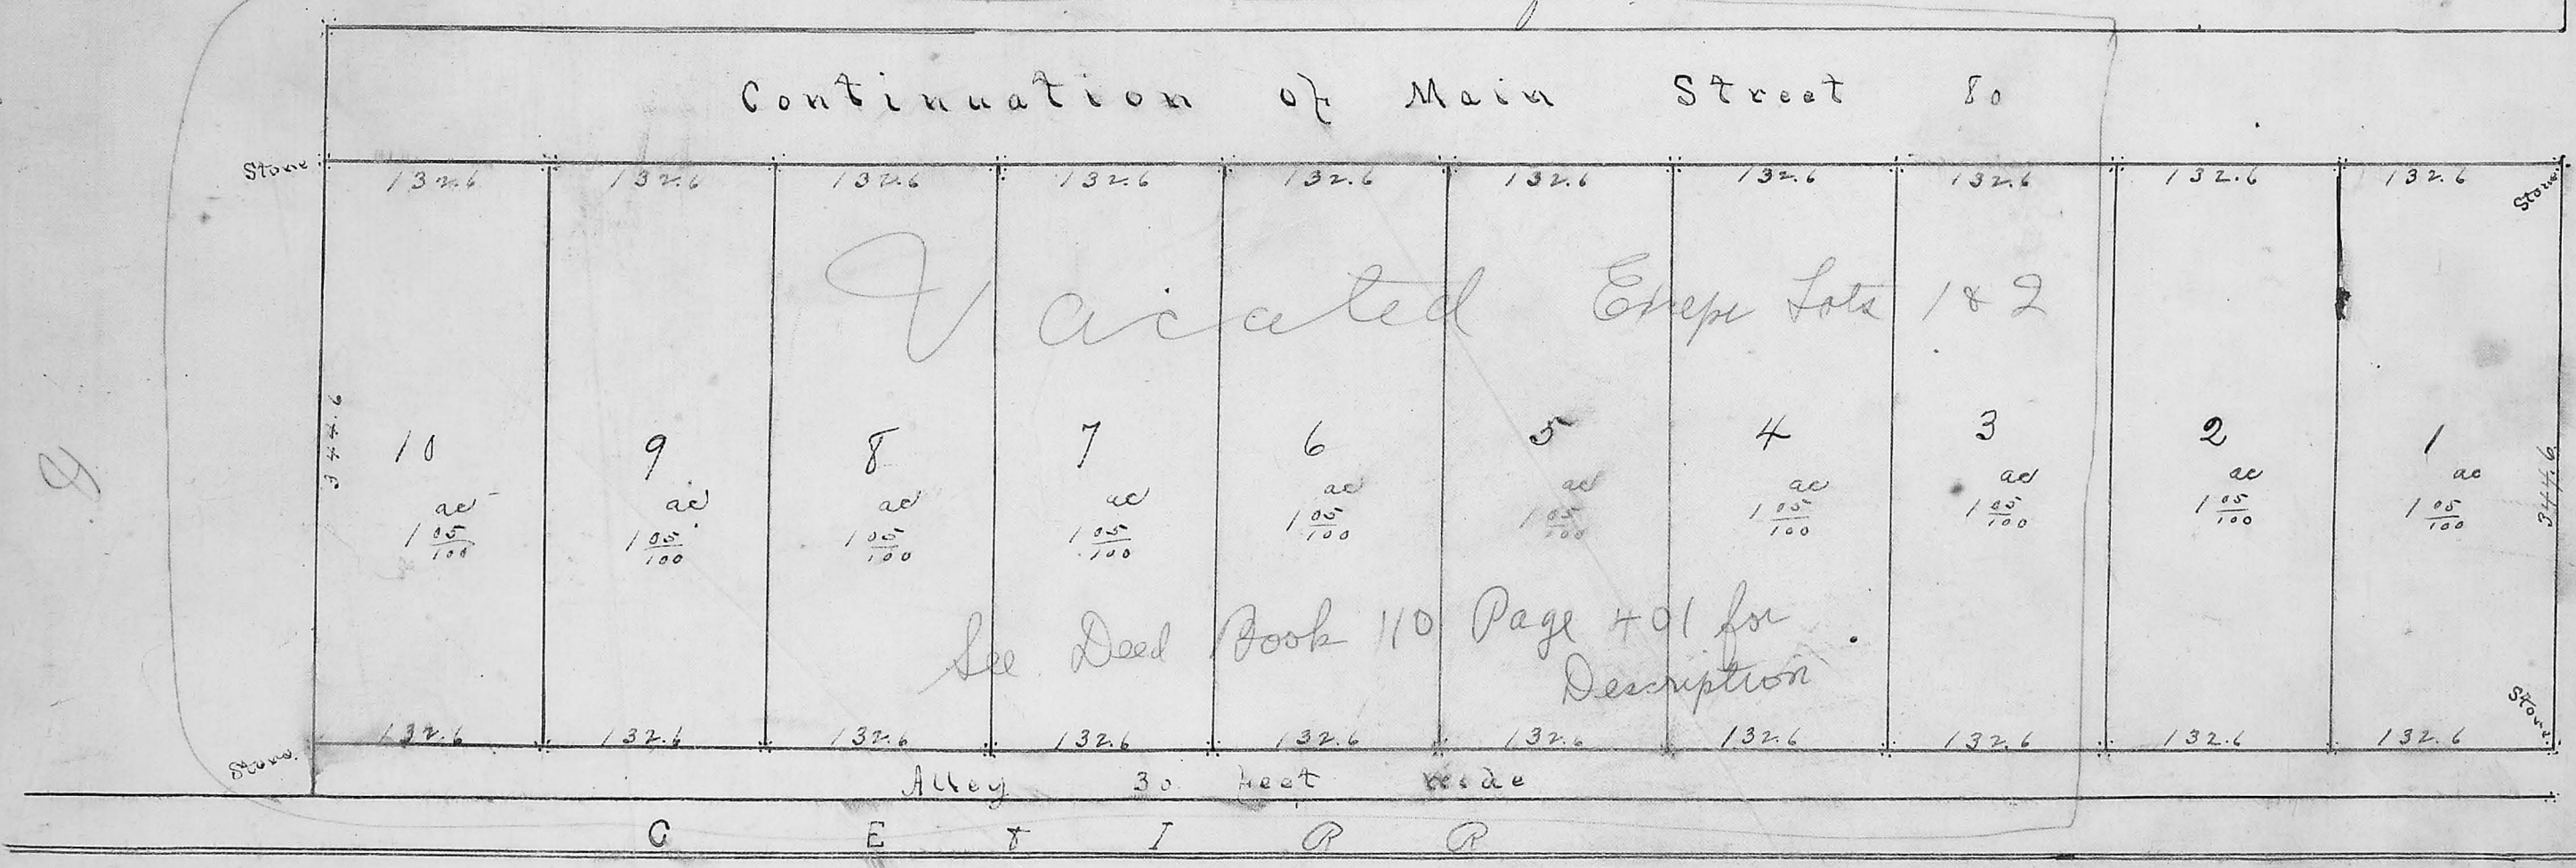 Continuation of Main Street 80
Stone
132.6 132.6 132.6 132.6 132.6 132.6 132.6 132.6 132.6 132.6
Stone
Vacated Exept Lots 1 & 2
344.6
10 9 8 7 6 5 4 3 2 1
ac ac ac ac ac ac ac ac ac ac
1 05/100 1 05/100 1 05/100 1 05/100 1 05/100 1 05/100 1 05/100 1 05/100 1 05/100 1 05/100
344.6
See Deed Book 110 Page 401 for
Description
Stone
132.6 132.6 132.6 132.6 132.6 132.6 132.6 132.6 132.6 132.6
Stone
Alley 30 feet wide
C E & I R R